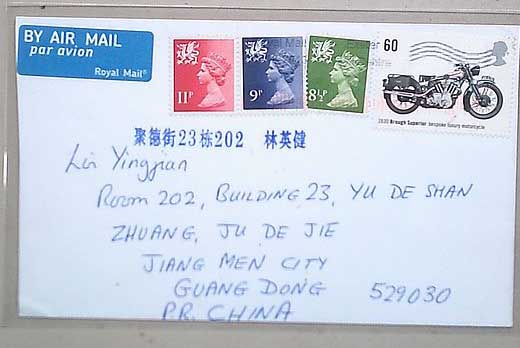 BY AIR MAIL
par avion
Royal Mail®
11P
9P
8½P
60
1930 Brough Superior bespoke luxury motorcycle
聚德街23栋202 林英健
Lin Yingjian
ROOM 202, BUILDING 23, YU DE SHAN
ZHUANG, JU DE JIE
JIANG MEN CITY
GUANG DONG 529030
P.R. CHINA